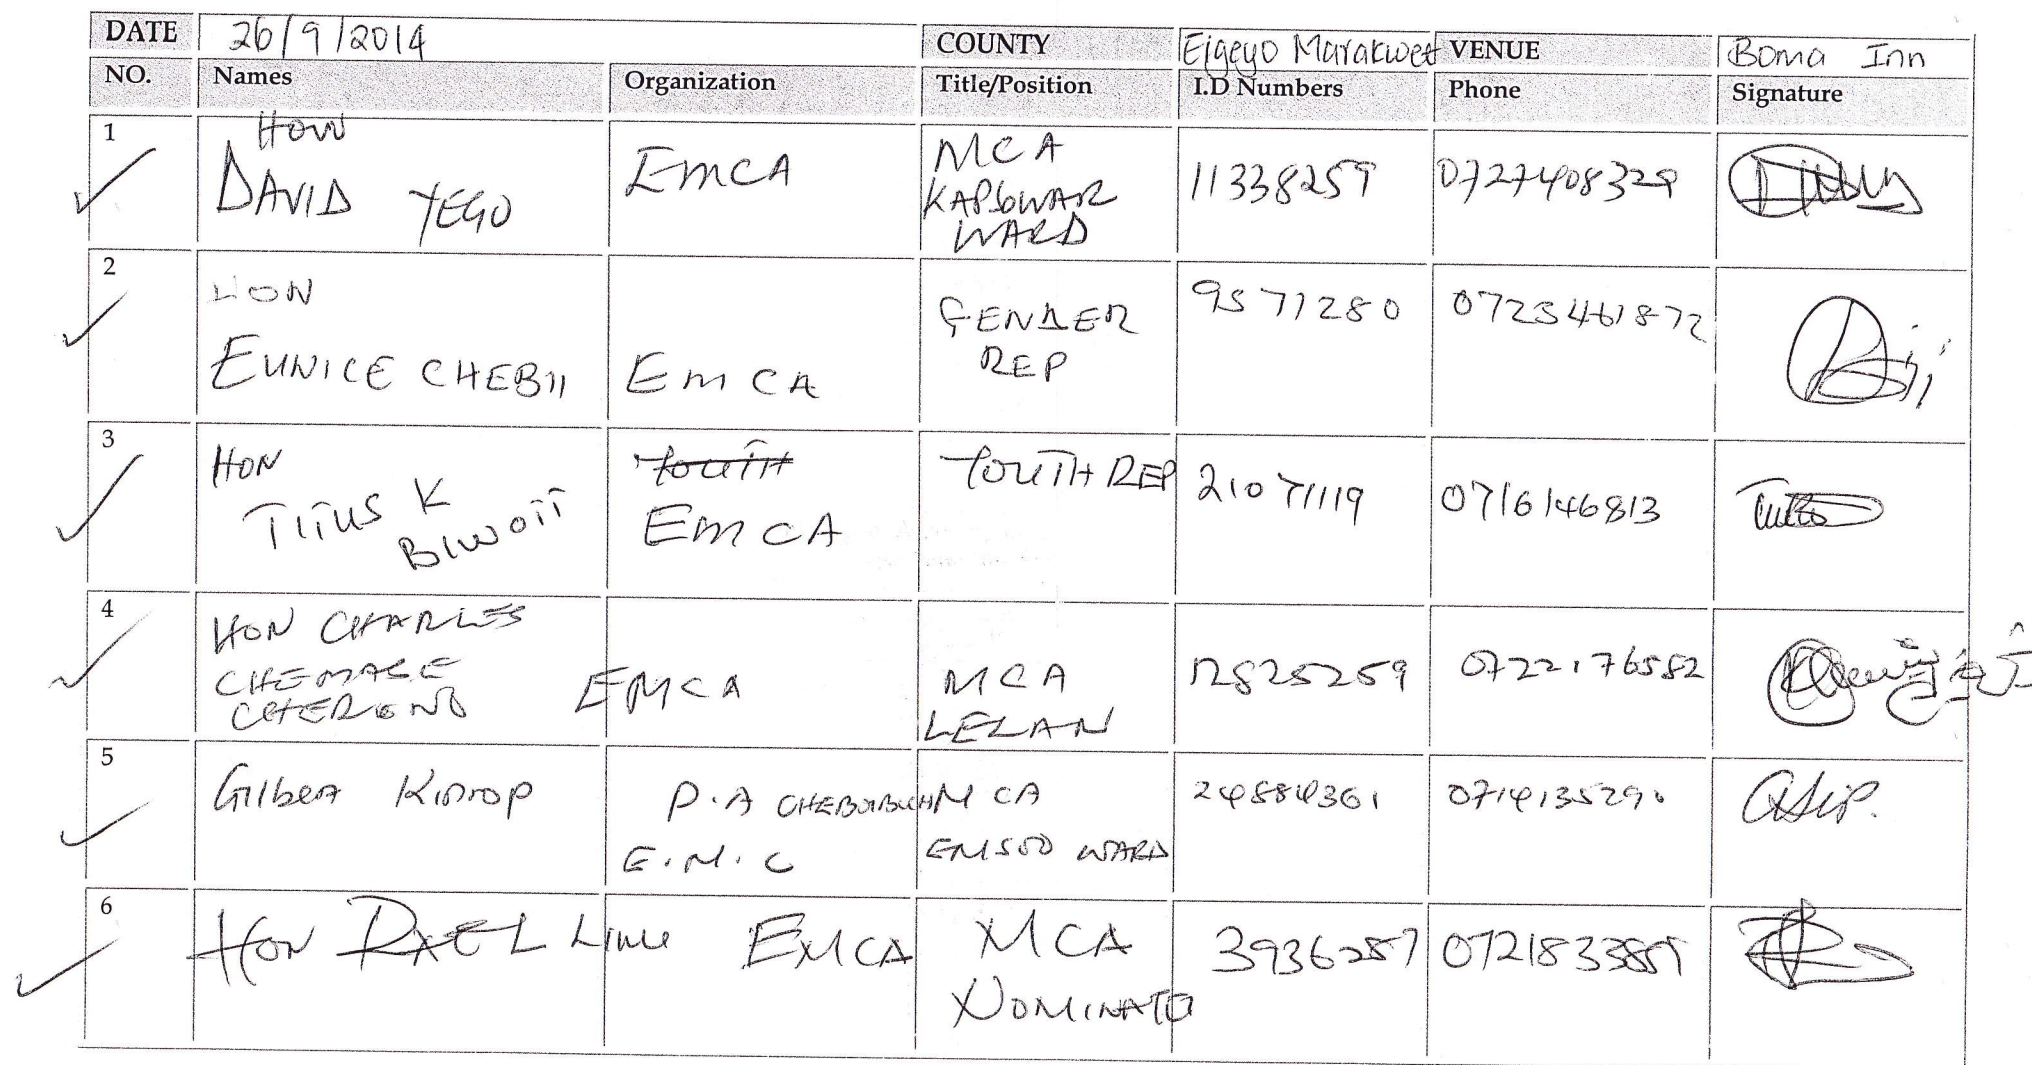 DATE 26/9/2014 COUNTY Elgeyo Marakwet VENUE Boma Inn
NO. Names Organization Title/Position I.D Numbers Phone Signature
1 HON DAVID YEGO EMCA MCA KAPSOWAR WARD 11338259 0727408329
2 HON EUNICE CHEBII EMCA GENDER REP 9571280 0723461872
3 HON TITUS K BIWOTT YOUTH EMCA YOUTH REP 21071119 0716146813
4 HON CHARLES EMCA MCA LELAN 12825259 0722176582
5 Gilbert Kiprop P.A E.M.C MCA WARD 24884361 0714135290
6 HON RAEL EMCA MCA NOMINATED 3936287